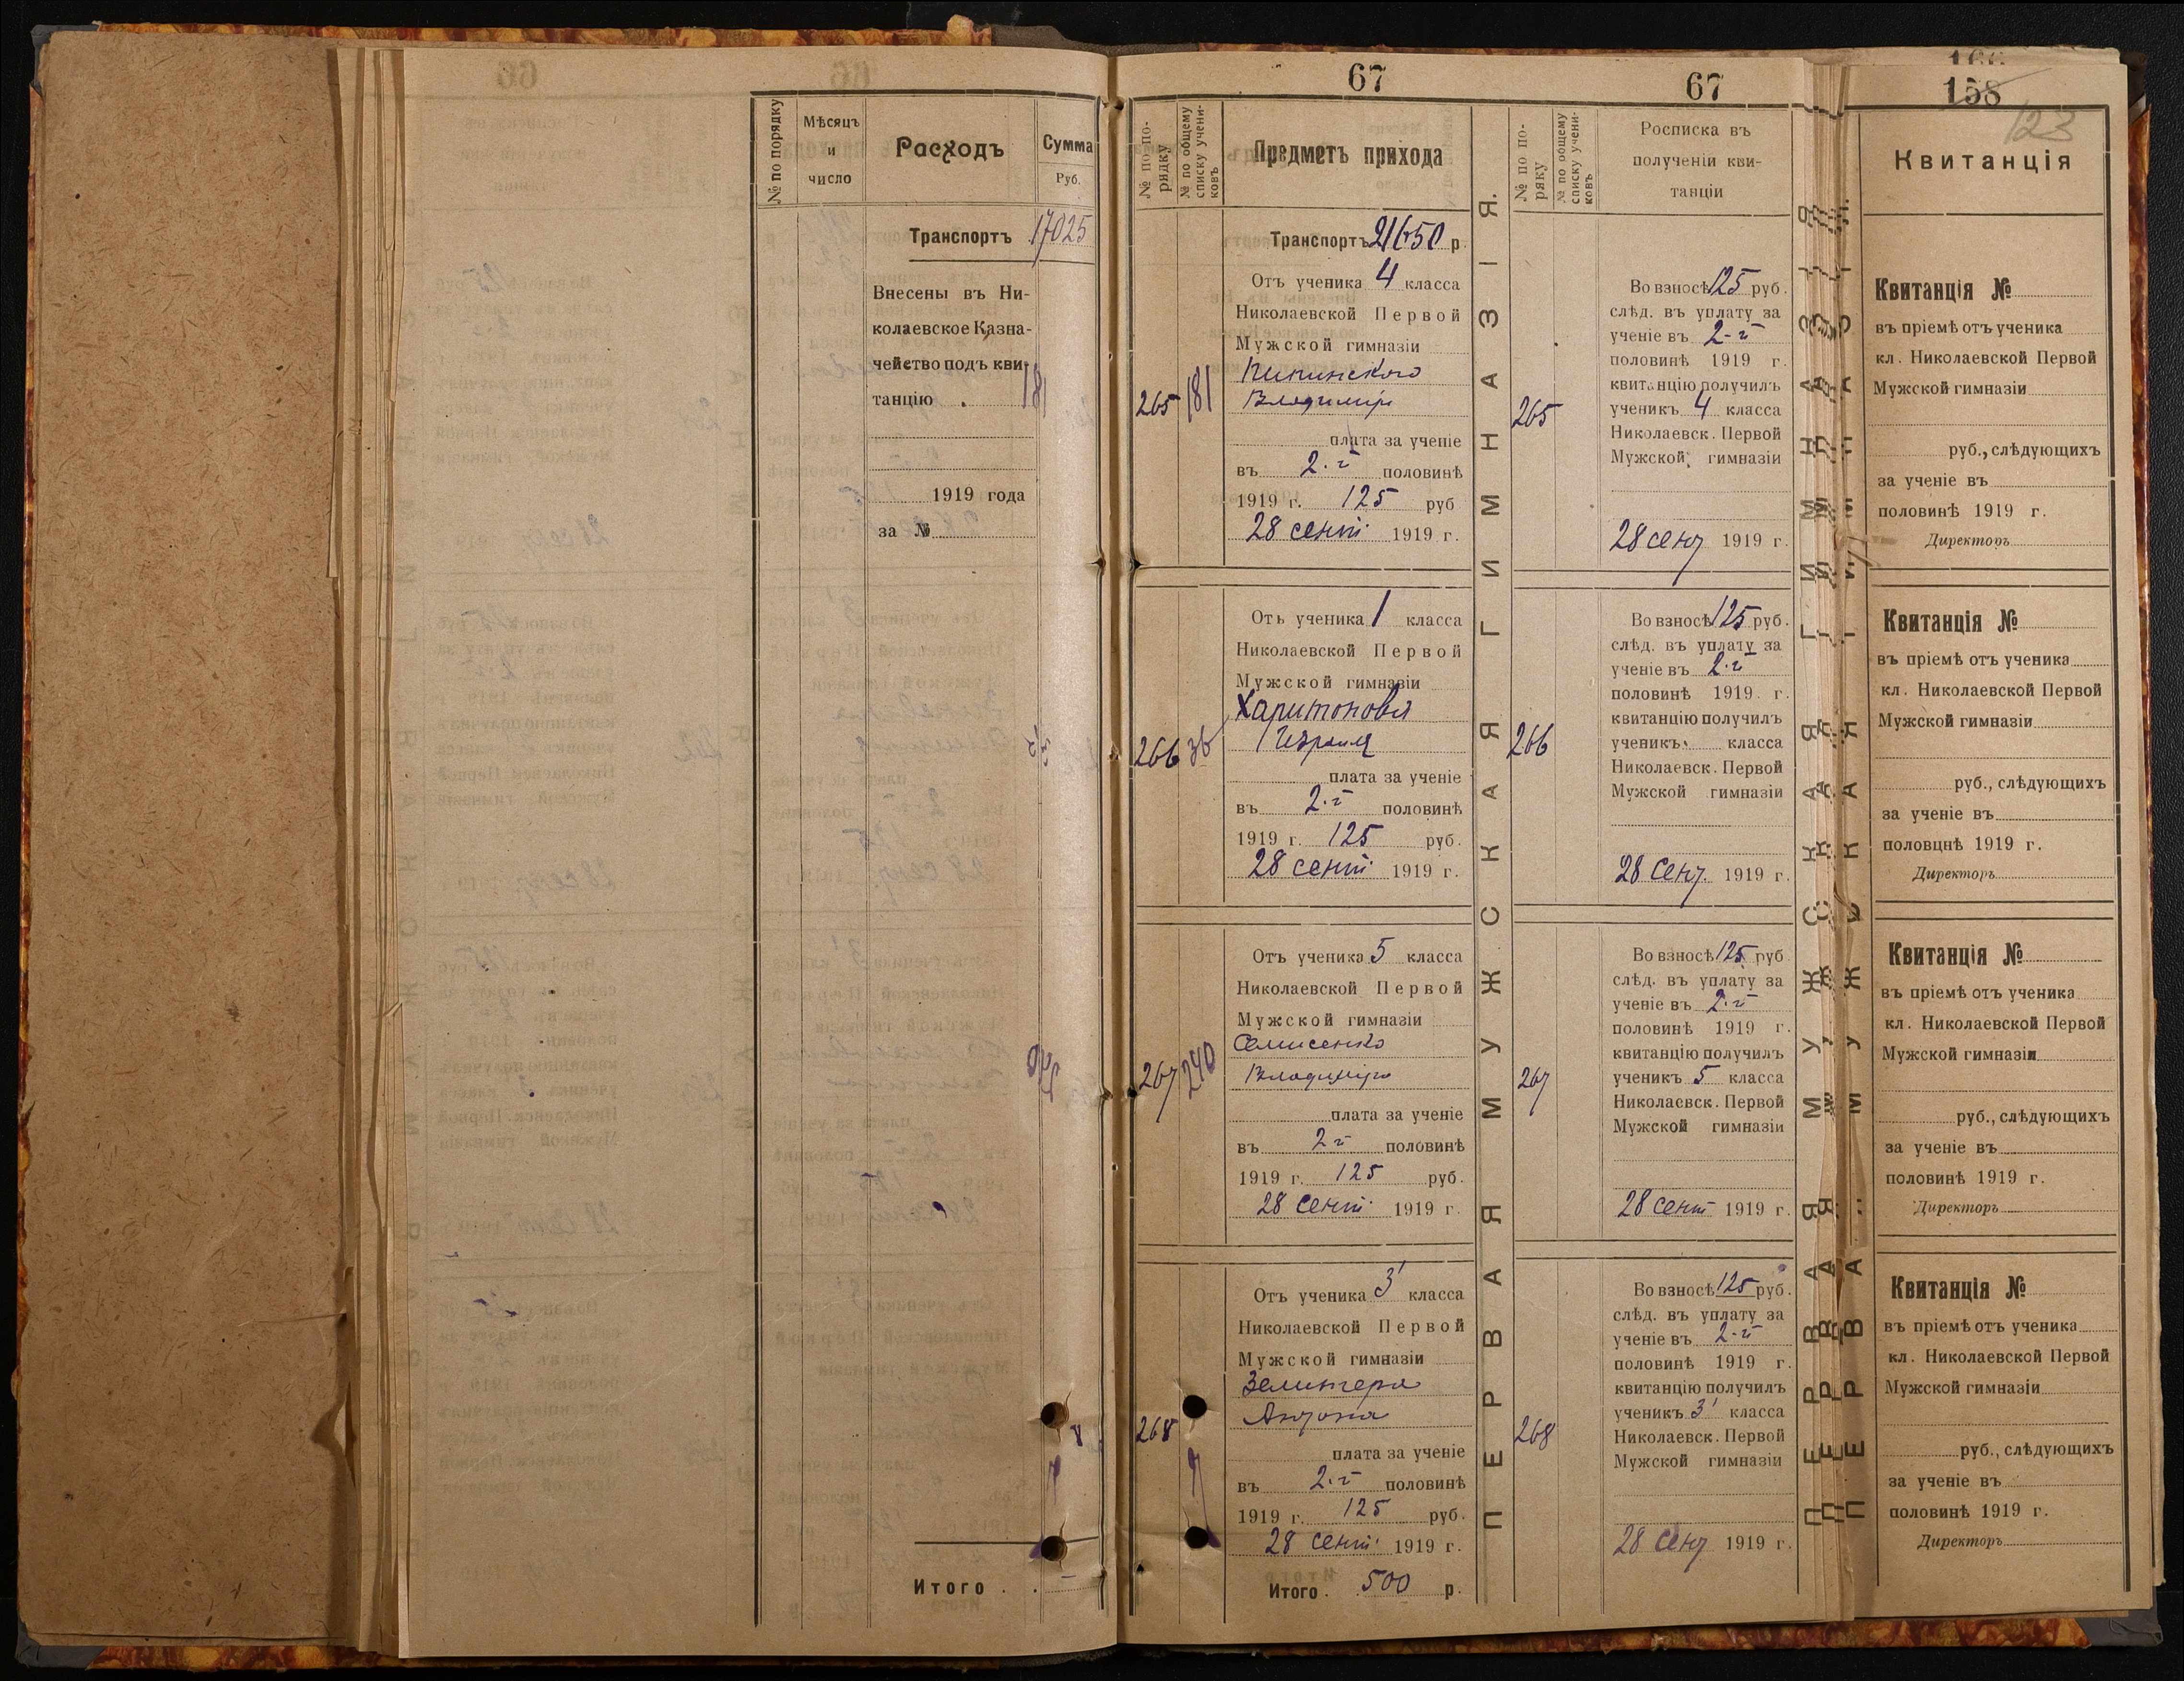 67
67
166
158
123
№ по порядку
Мѣсяцъ
и
число
Расходъ
Сумма
Руб.
Транспортъ 17025
Внесены въ Ни-
колаевское Казна-
чейство подъ кви-
танцію
1919 года
за №
Итого . .
№ по по-
рядку
№ по общему
списку учени-
ковъ
Предметъ прихода
Транспортъ 21650 р.
265
181
Отъ ученика 4 класса
Николаевской Первой
Мужской гимназіи
Владиміра
плата за ученіе
въ 2-й половинѣ
1919 г. 125 руб
28 сент. 1919 г.
266
36
Отъ ученика 1 класса
Николаевской Первой
Мужской гимназіи
Харитонова
Израиля
плата за ученіе
въ 2-й половинѣ
1919 г. 125 руб.
28 сент. 1919 г.
267
240
Отъ ученика 5 класса
Николаевской Первой
Мужской гимназіи
Семисенко
Владиміра
плата за ученіе
въ 2-й половинѣ
1919 г. 125 руб.
28 сент. 1919 г.
268
Отъ ученика 3 класса
Николаевской Первой
Мужской гимназіи
Зелингера
Антона
плата за ученіе
въ 2-й половинѣ
1919 г. 125 руб.
28 сент. 1919 г.
Итого . 500 р.
ПЕРВАЯ МУЖСКАЯ ГИМНАЗІЯ.
№ по по-
ряку
№ по общему
списку учени-
ковъ
Росписка въ
полученіи кви-
танціи
265
Во взносѣ 125 руб.
слѣд. въ уплату за
ученіе въ 2-й
половинѣ 1919 г.
квитанцію получилъ
ученикъ 4 класса
Николаевск. Первой
Мужской гимназіи
28 сент 1919 г.
266
Во взносѣ 125 руб.
слѣд. въ уплату за
ученіе въ 2-й
половинѣ 1919 г.
квитанцію получилъ
ученикъ класса
Николаевск. Первой
Мужской гимназіи
28 сент. 1919 г.
267
Во взносѣ 125 руб
слѣд. въ уплату за
ученіе въ 2-й
половинѣ 1919 г.
квитанцію получилъ
ученикъ 5 класса
Николаевск. Первой
Мужской гимназіи
28 сент 1919 г.
268
Во взносѣ 125 руб.
слѣд. въ уплату за
ученіе въ 2-й
половинѣ 1919 г.
квитанцію получилъ
ученикъ 3 класса
Николаевск. Первой
Мужской гимназіи
28 сент 1919 г.
ПЕРВАЯ МУЖСКАЯ ГИМНАЗІЯ
Квитанція
Квитанція №
въ пріемѣ отъ ученика
кл. Николаевской Первой
Мужской гимназіи
руб., слѣдующихъ
за ученіе въ
половинѣ 1919 г.
Директоръ
Квитанція №
въ пріемѣ отъ ученика
кл. Николаевской Первой
Мужской гимназіи
руб., слѣдующихъ
за ученіе въ
половцнѣ 1919 г.
Директоръ
Квитанція №
въ пріемѣ отъ ученика
кл. Николаевской Первой
Мужской гимназіи
руб., слѣдующихъ
за ученіе въ
половинѣ 1919 г.
Директоръ
Квитанція №
въ пріемѣ отъ ученика
кл. Николаевской Первой
Мужской гимназіи
руб., слѣдующихъ
за ученіе въ
половинѣ 1919 г.
Директоръ